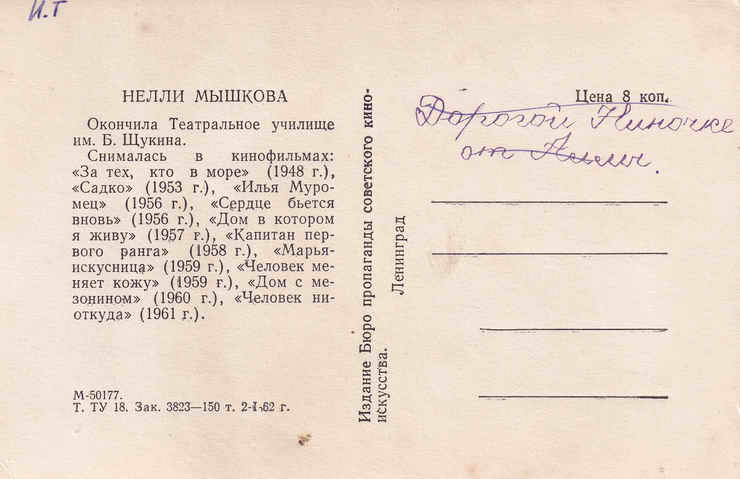 И.Т
НЕЛЛИ МЫШКОВА
Окончила Театральное училище
им. Б. Щукина.
Снималась в кинофильмах:
«За тех, кто в море» (1948 г.),
«Садко» (1953 г.), «Илья Муро-
мец» (1956 г.), «Сердце бьется
вновь» (1956 г.), «Дом в котором
я живу» (1957 г.), «Капитан пер-
вого ранга» (1958 г.), «Марья-
искусница» (1959 г.), «Человек ме-
няет кожу» (1959 г.), «Дом с ме-
зонином» (1960 г.), «Человек ни-
откуда» (1961 г.).
М-50177.
Т. ТУ 18. Зак. 3823—150 т. 2-I-62 г.
Издание Бюро пропаганды советского кино-
искусства.
Ленинград
Цена 8 коп.
Дорогой Ниночке
от